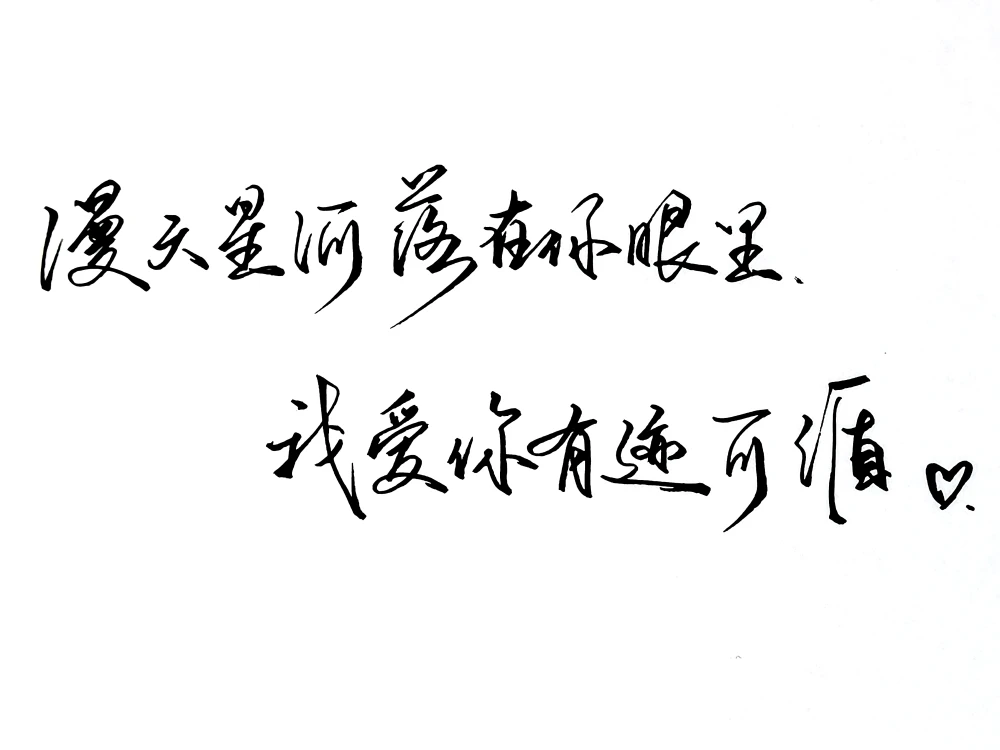 漫天星河落在你眼里、
我爱你有迹可循♡.